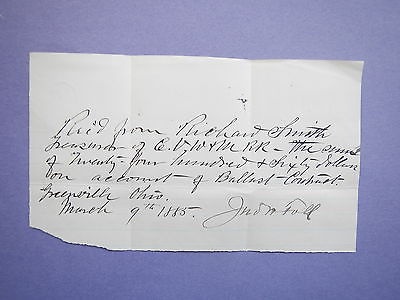 Rec'd from Richard Smith
treasurer of C. V. W & M RR - the sum
of Twenty-four hundred & Sixty dollars
on account of Ballast Contract.
Greenville Ohio.
March 9th 1885. Jno W Foll